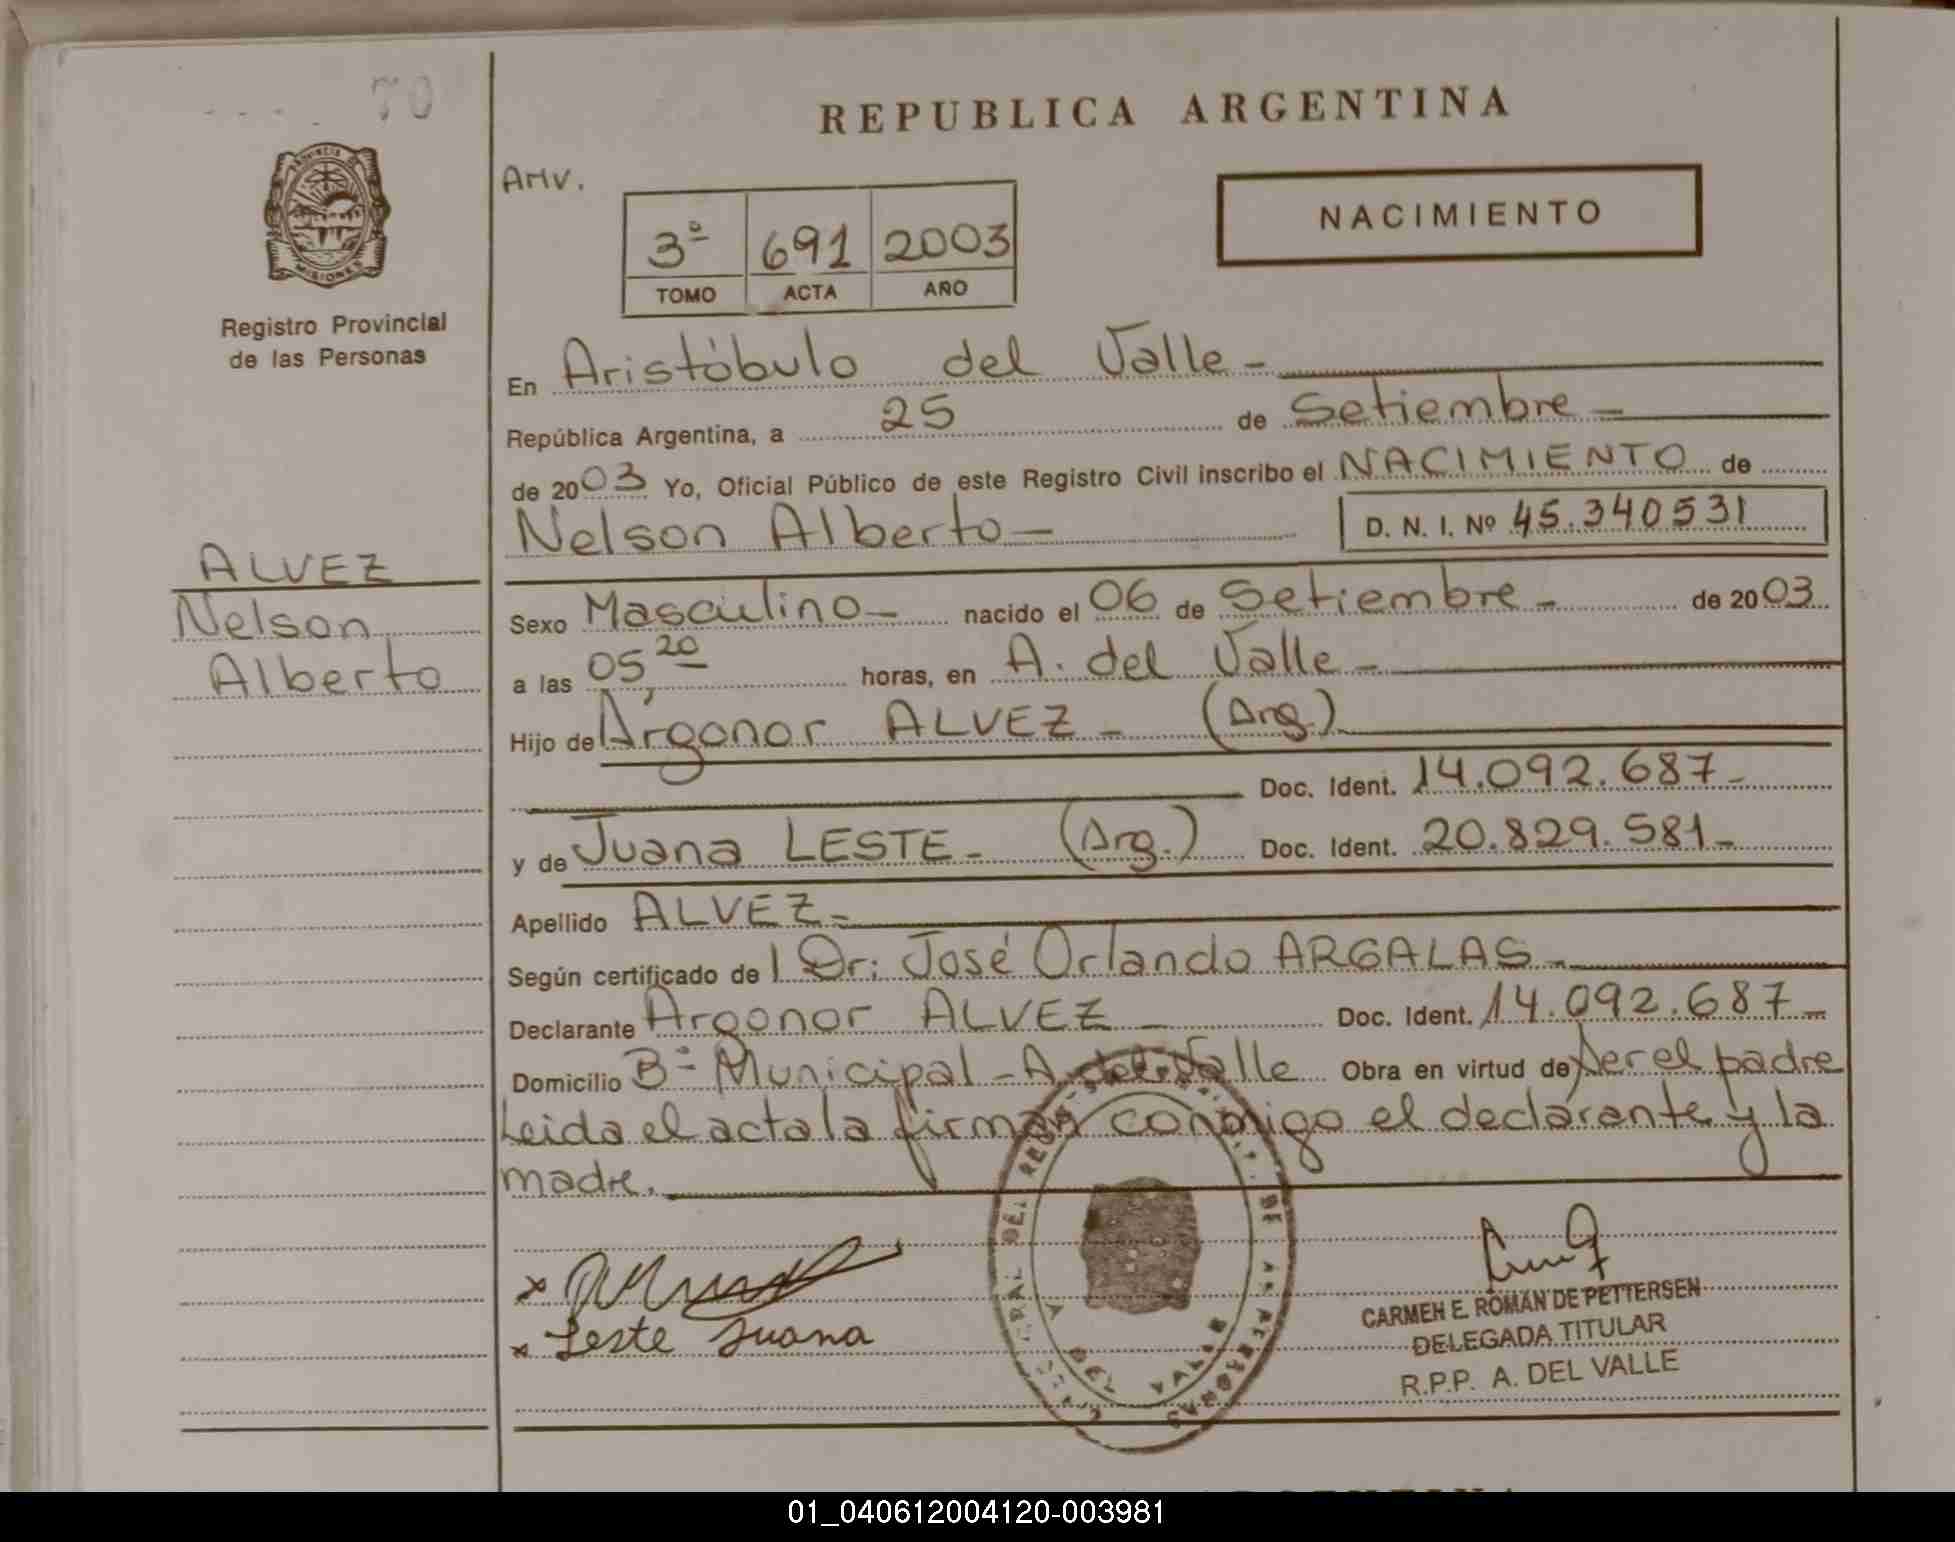 70
REPUBLICA ARGENTINA
PROVINCIA DE
MISIONES
Registro Provincial
de las Personas
AHV.
3ª 691 2003
TOMO ACTA AÑO
NACIMIENTO
En Aristóbulo del Valle-
República Argentina, a 25 de Setiembre-
de 2003 Yo, Oficial Público de este Registro Civil inscribo el NACIMIENTO de
Nelson Alberto- D. N. I. Nº 45.340531
ALVEZ
Nelson
Alberto
Sexo Masculino- nacido el 06 de Setiembre- de 2003
a las 05,20 horas, en A. del Valle-
Hijo de Argonor ALVEZ- (Arg.)
Doc. Ident. 14.092.687-
y de Juana LESTE- (Arg.) Doc. Ident. 20.829.581-
Apellido ALVEZ-
Según certificado de l Dr: José Orlando ARGALAS-
Declarante Argonor ALVEZ- Doc. Ident. 14.092.687-
Domicilio Bº Municipal-A. del Valle Obra en virtud de ser el padre
Leida el acta la firman conmigo el declarante y la
madre.
x
x Leste Juana
A DEL VALLE
CARMEN E. ROMAN DE PETTERSEN
DELEGADA TITULAR
R.P.P. A. DEL VALLE
01_040612004120-003981